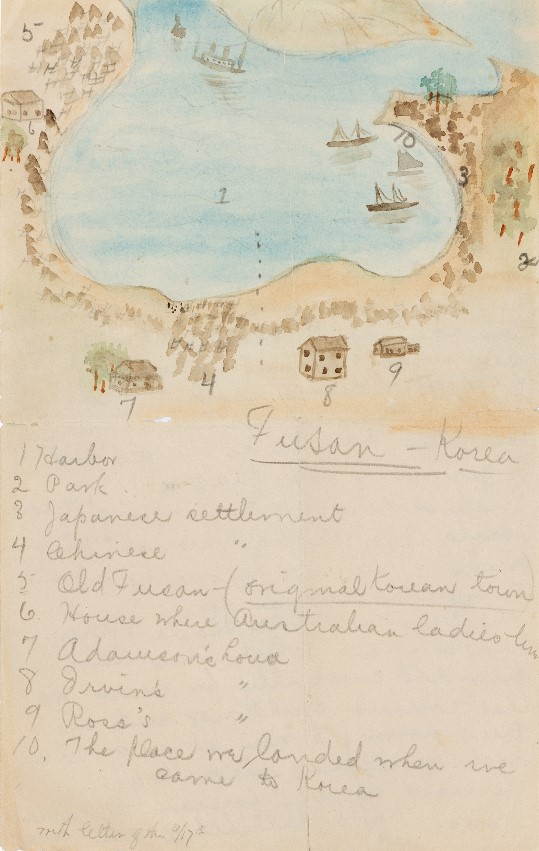 5
6
10
1
3
2
7
4
8
9
Fusan - Korea
1 Harbor
2 Park
3 Japanese settlement
4 Chinese "
5 Old Fusan - (original Korean town)
6. House where Australian ladies live
7 Adamson's house
8 Irvin's "
9 Ross's "
10. The place we landed when we
came to Korea
with letter of